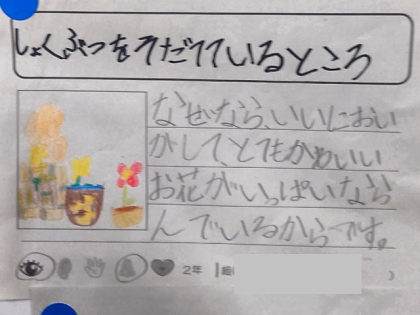 しょくぶつをそだてているところ
なぜなら、いいにおい
がして、とてもかわいい
お花がいっぱいなら
んでいるからです。
2年 1組